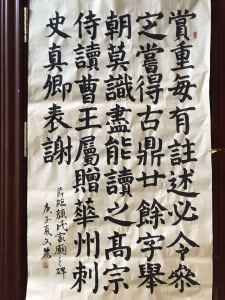 賞重每有註述必令參
定嘗得古鼎廿餘字舉
朝莫識盡能讀之高宗
侍讀曹王屬贈華州刺
史真卿表謝
節臨顏氏家廟之碑
庚子夏文